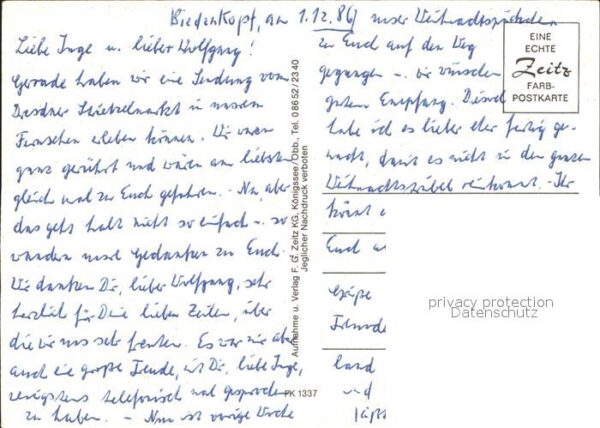 Biedenkopf, am 1.12.86
Liebe Inge u. lieber Wolfgang!
Gerade haben wir eine Sendung vom
Dresdner Striezelmarkt in unserem
Fernsehen erleben können. Wir waren
ganz gerührt und wären am liebsten
gleich mal zu Euch gefahren. - Nun, aber
das geht halt nicht so einfach - so
wandern unsere Gedanken zu Euch.
Wir danken Dir, lieber Wolfgang, sehr
herzlich für Deine lieben Zeilen, über
die wir uns sehr freuten. Es war mir aber
auch eine große Freude, mit Dir, liebe Inge,
wenigstens telefonisch mal gesprochen
zu haben. - Nun ist vorige Woche
unser Weihnachtspäckchen
zu Euch auf den Weg
gegangen - wir wünschen
guten Empfang. Diesmal
habe ich es lieber eher fertig ge-
macht, damit es nicht in den ganzen
Weihnachtstrubel reinkommt. - Ihr
könnt
Euch
Grüße
Freude
land
und
EINE
ECHTE
Zeitz
FARB-
POSTKARTE
Aufnahme u. Verlag F. G. Zeitz KG, Königssee/Obb., Tel. 08652/2340
Jeglicher Nachdruck verboten
PK 1337
privacy protection
Datenschutz